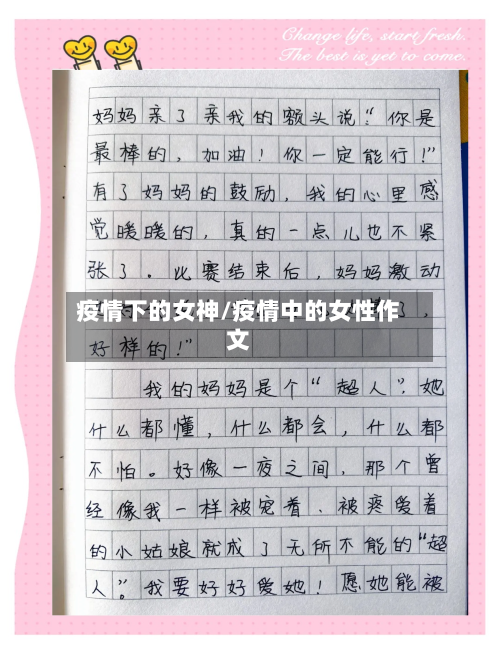 Change life, start fresh.
The best is yet to come.
妈妈亲了亲我的额头说:“你是
最棒的,加油!你一定能行!”
有了妈妈的鼓励,我的心里感
觉暖暖的,真的一点儿也不紧
张了。比赛结束后,妈妈激动
疫情下的女神/疫情中的女性作
文
了,
好样的!”
我的妈妈是个“超人”,她
什么都懂,什么都会,什么都
不怕。好像一夜之间,那个曾
经像我一样被宠着、被疼爱着
的小姑娘就成了无所不能的“超
人”。我要好好爱她!愿她能被